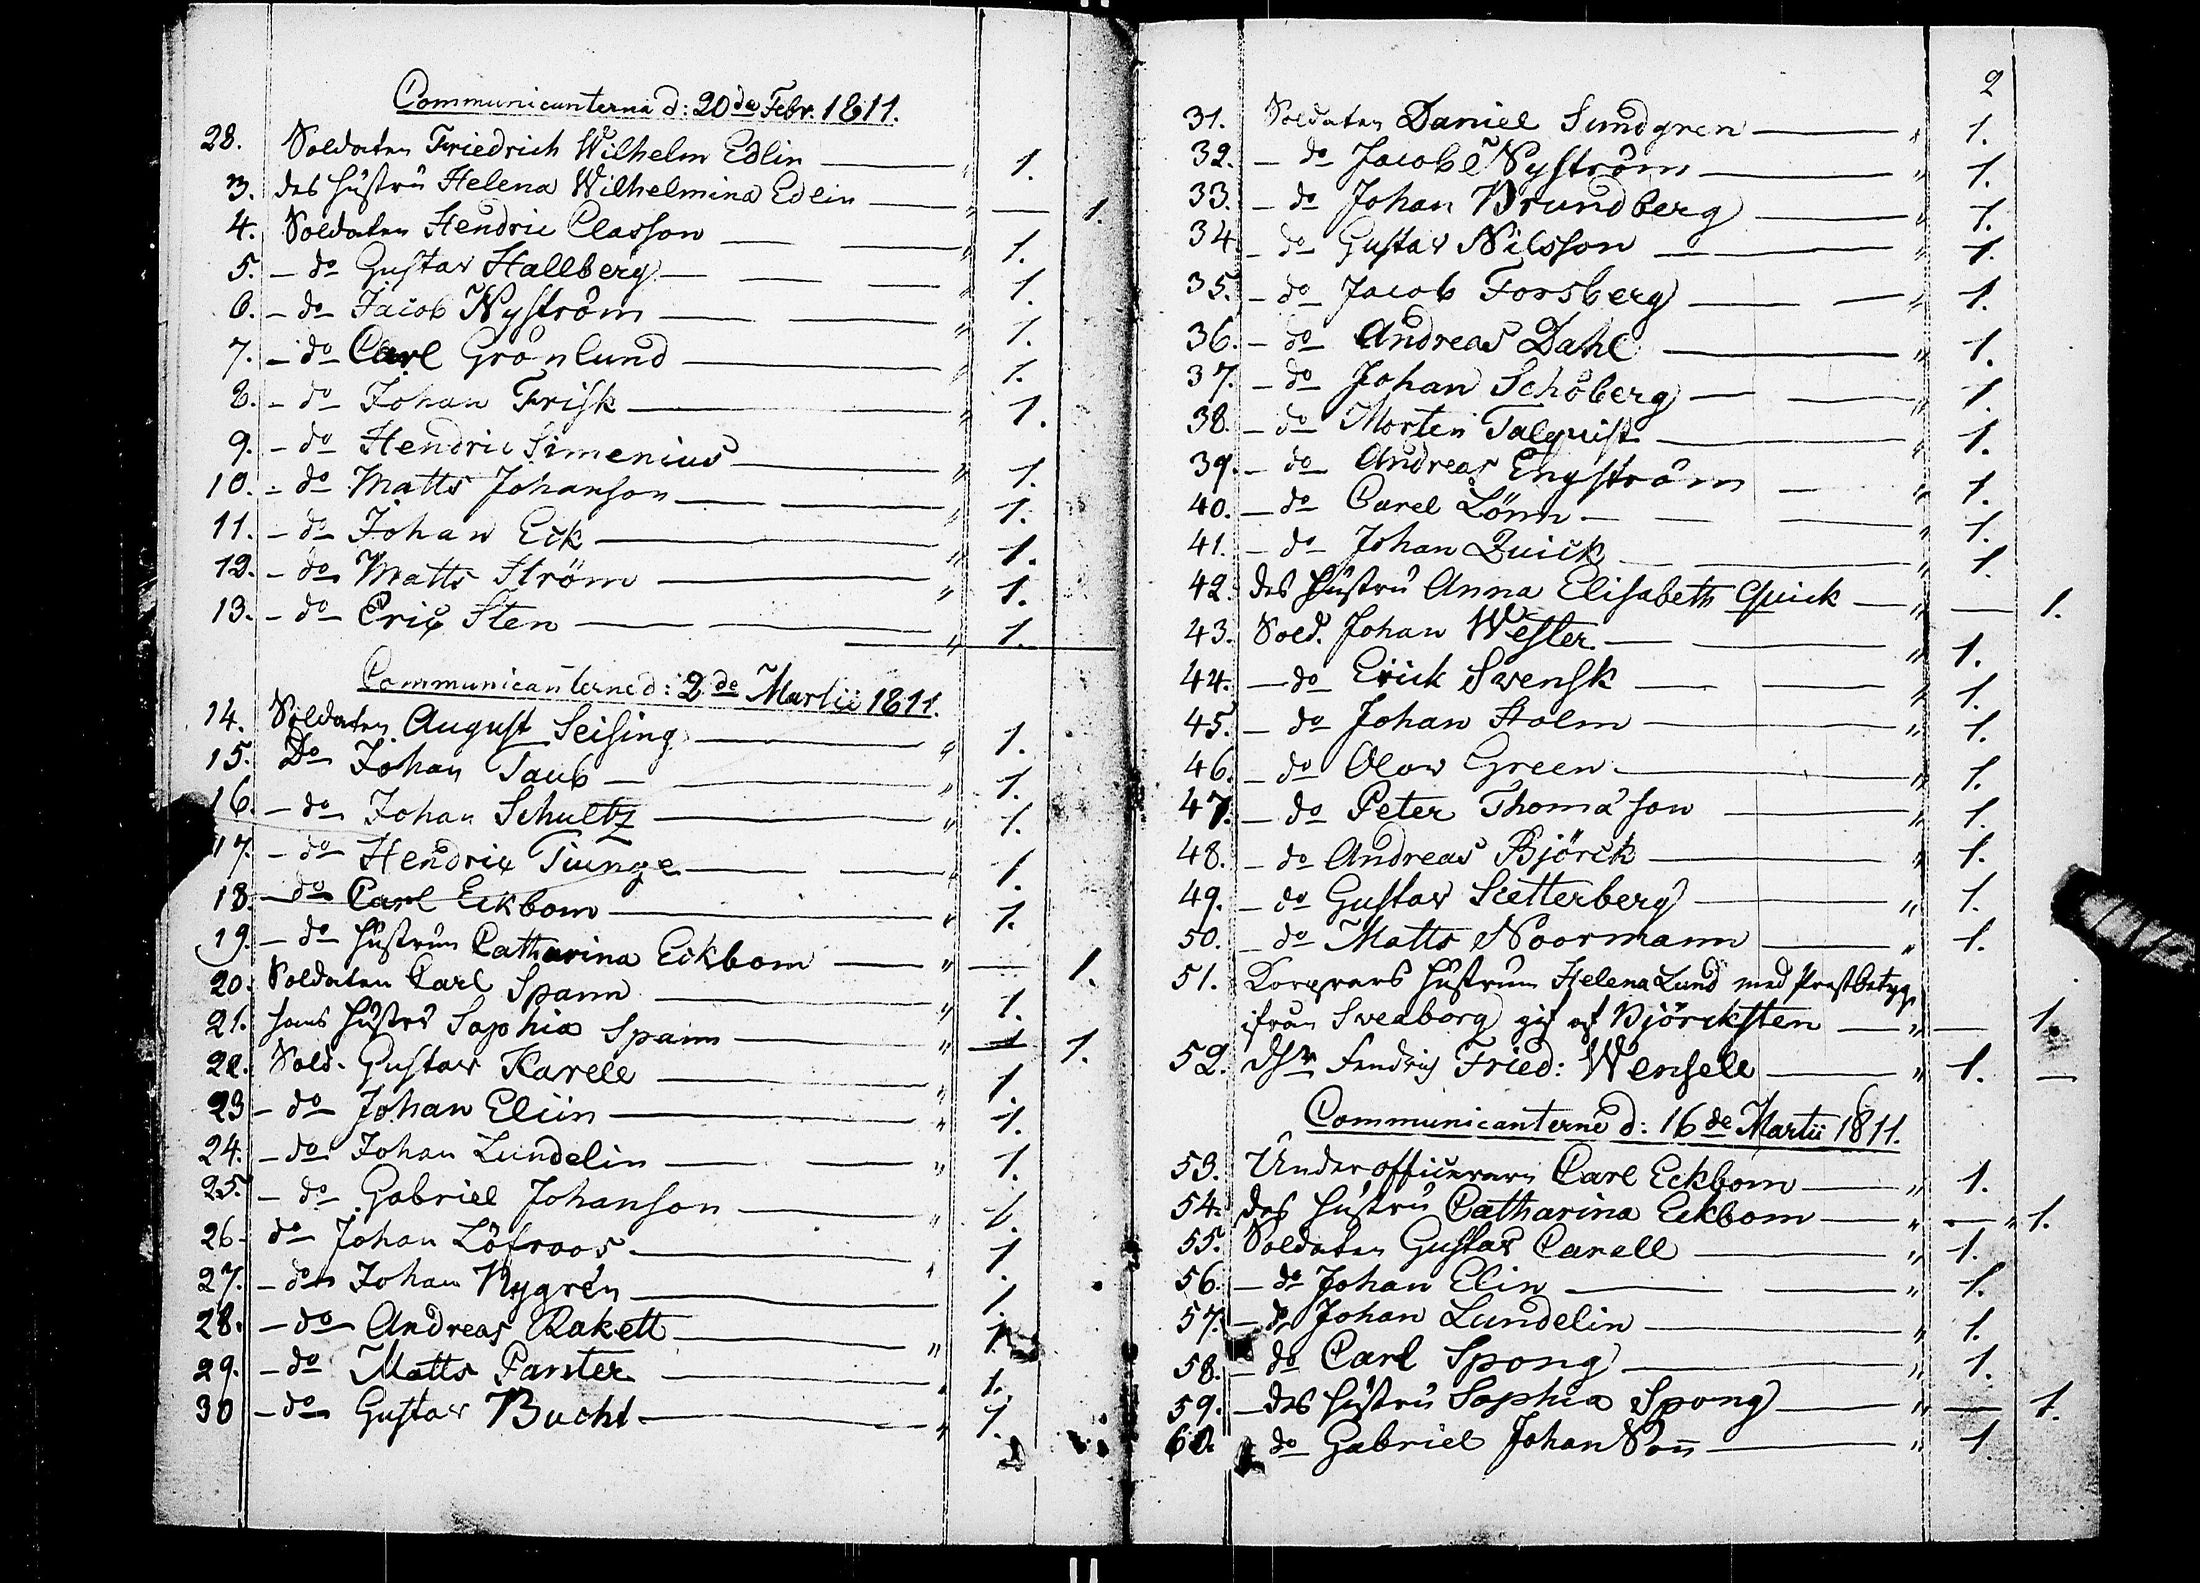 Communicanterna d: 20de Febr. 1811.
28. Soldaten Friedrich Wilhelm Edlin — " 1.
3. des Hustru Helena Wilhelmina Edlin — " — 1.
4. Soldaten Hendric Classon — " 1.
5. – do Gustav Hallberg — " 1.
6. – do Jacob Nyström — " 1.
7. – do Carl Grönlund — " 1.
8. – do Johan Frisk — " 1.
9. – do Hendric Simenius — " 1.
10. – do Matts Johanson — " 1.
11. – do Johan Eck — " 1.
12. – do Matts Ström — " 1.
13. – do Eric Sten — " 1.
Communicanterne d: 2de Martii 1811.
14. Soldaten August Seising — " 1.
15. Do Johan Taub — " 1.
16. – do Johan Schultz — " 1.
17. – do Hendric Tiunge — " 1.
18. – do Carl Eckbom — " 1.
19. – do Hustrun Catharina Eckbom — " — 1.
20. Soldaten Carl Spann — " 1.
21. hans Hustru Sophia Spann — " 1.
22. Sold. Gustav Karell — " 1.
23 – do Johan Eliin — " 1.
24. – do Johan Lundelin — " 1.
25. – do Gabriel Johanson — " 1.
26 – do Johan Löfroos — " 1.
27. – do Johan Nygrén — 1.
28. – do Andreas Rakett — " 1.
29. – do Matts Panter — " 1.
30 – do Gustav Bucht — " 1.
2
31. Soldaten Daniel Sundgren — " 1.
32. – do Jacob Nyström — " 1.
33. – do Johan Brundberg — " 1.
34 – do Gustav Nilsson — " 1.
35. – do Jacob Forsberg — " 1.
36. – do Andreas Dahl — " 1.
37. – do Johan Schöberg — " 1.
38. – do Morten Talquist — " 1.
39. – do Andreas Engström — " 1.
40. – do Carel Lönn — " 1.
41. – do Johan Quick — " 1.
42. des Hustru Anna Elisabeth Quick — " — 1.
43. Sold. Johan Wester — " 1.
44. – do Erick Svensk — " 1.
45. – do Johan Holm — " 1.
46. – do Olow Green — " 1.
47. – do Peter Thomason — " 1.
48. – do Andreas Björck — " 1.
49. – do Gustav Setterberg — " 1.
50. – do Matts Noormann — " 1.
51. Korprals Hustrun Helena Lund med Prestbetyg
ifrån Sveaborg gif af Björcksten — " — 1.
52. Fendrich Fried: Wensell — " 1. —
Communicanterne d: 16de Martii 1811.
53. Underofficeraren Carl Eckbom — " 1.
54. des Hustru Catharina Eckbom — " — " 1.
55. Soldaten Gustav Carell — " 1.
56. – do Johan Elin — " 1.
57. – do Johan Lundelin — " 1.
58. – do Carl Spong — " 1.
59. – des Hustru Sophia Spong — " — 1.
60. do Gabriel Johan Son — " 1